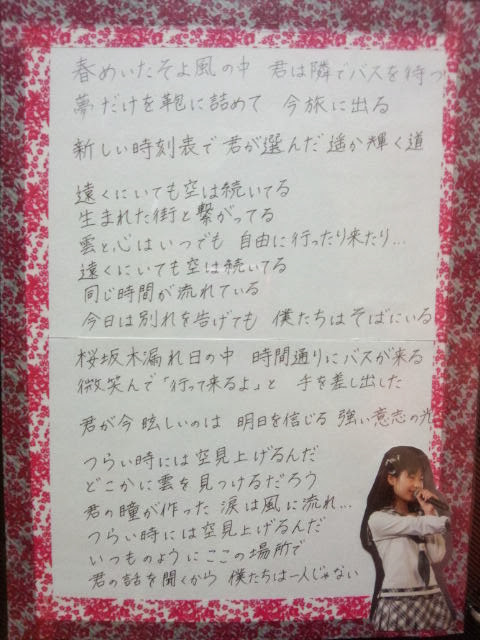 春めいたそよ風の中 君は隣でバスを待つ
夢だけを鞄に詰めて 今旅に出る
新しい時刻表で 君が選んだ遥か輝く道
遠くにいても空は続いてる
生まれた街と繋がってる
雲と心はいつでも 自由に行ったり来たり...
遠くにいても空は続いてる
同じ時間が流れている
今日は別れを告げても 僕たちはそばにいる
桜坂木漏れ日の中 時間通りにバスが来る
微笑んで「行って来るよ」と 手を差し出した
君が今眩しいのは 明日を信じる 強い意志の光
つらい時には空見上げるんだ
どこかに雲を見つけるだろう
君の瞳が作った 涙は風に流れ...
つらい時には空見上げるんだ
いつものように ここの場所で
君の話を聞くから 僕たちは一人じゃない